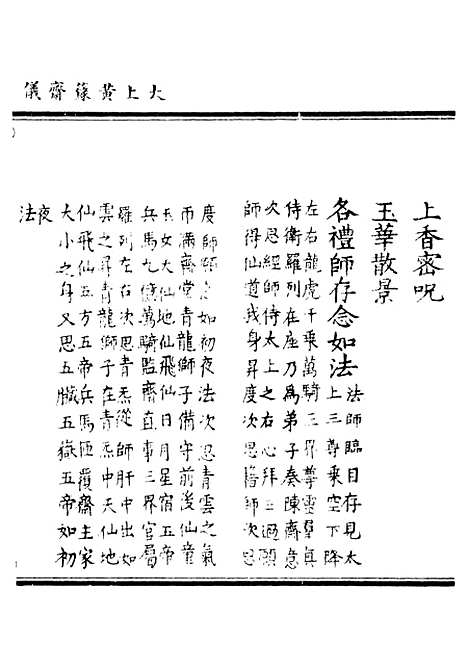 太上黃籙齋儀
上香密呪
玉華散景
各禮師存念如法
法師臨目存見太
上三尊乘空下降
左右龍虎千乘萬騎三界尊靈羣真
侍衛羅列在座乃為弟子奏陳齋意
次思經師侍太上之右心拜三過願
師得仙道我身昇度次思籍師次思
度師師法如初夜法次思青雲之氣
帀滿齋堂青龍獅子備守前後仙童
玉女天仙地仙飛仙日月星宿五帝
兵馬九億萬騎監齋直事三界官屬
羅列左右次思青炁從師肝中出如
雲之昇青龍獅子在青炁中天仙地
仙飛仙五方五帝兵馬匝覆齋主家
大小之身又思五臟五嶽五帝如初
夜
法